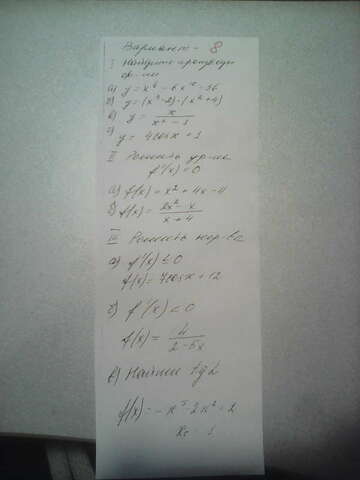 Вариант - 8
I Найдите производн.
ф-ии
а) y = x⁶ -
б) y = (x³ - 2) · (x² + 4)
в) y = x / (x² - 1)
г) y = 4cosx + 1
II Решить ур-ие
f'(x) = 0
а) f(x) = x² + 4x - 4
б) f(x) = (2x² - x) / (x + 4)
III Решить нер-ва
а) f'(x) ≤ 0
f(x) = 7cosx + 12
б) f'(x) < 0
f(x) = 4 / (2 - 5x)
в) Найти tgα
f(x) = -x³ - 2x² - 2